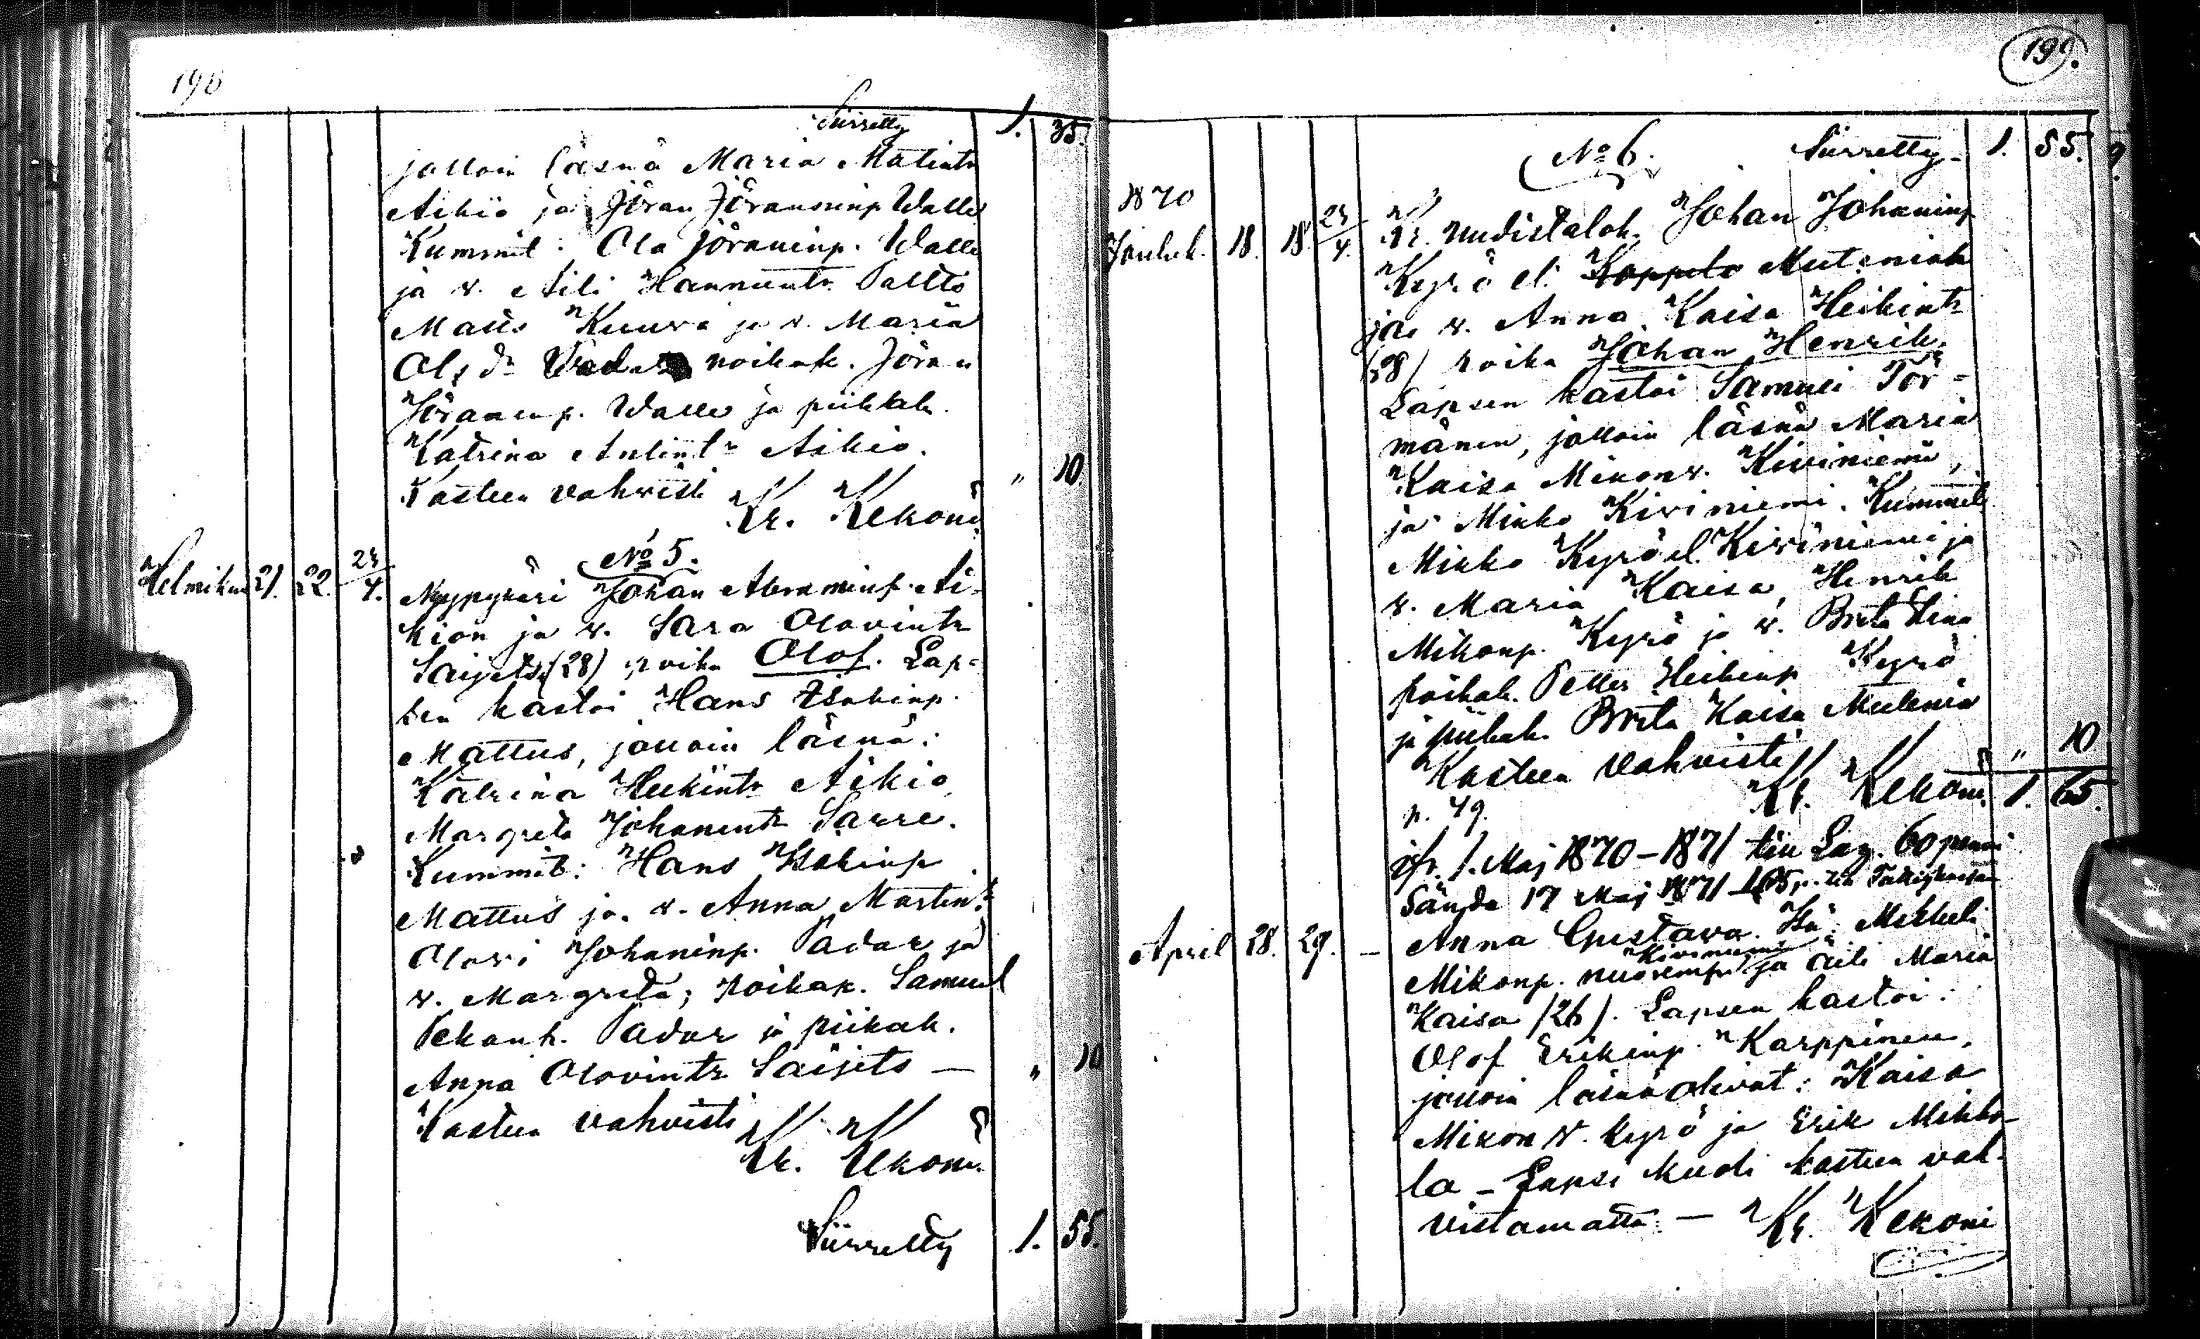 198
Siirretty 1. 35.
jolloin läsnä Maria Matintr
Aikio ja Jöran Jöransinp. Walle
Kummit: Ola Jöraninp. Walle
ja v. Aili Hannuntr. Paltto
Matis Kuuva ja v. Maria
Ols dr poikak. Jöran
Jöraninp. Walle ja piikak.
Katrina Antintr Aikio.
Kasteen vahvisti " 10.
Kr. Kekoni
No 5.
Helmikuu 21. 22. 24/4. Nypykäri Johan Abraminp. Ai-
kion ja v. Sara Olovintr
Saijets (28) poika Olof. Lap-
sen kastoi Hans Isakinp.
Mattus, jolloin läsnä:
Katrina Heikintr Aikio,
Margreta Johanintr Sarre.
Kummit: Hans Isakinp
Mattus ja v. Anna Martintr
Olovi Johaninp. Padar ja
v. Margreta; Poikak. Samuel
Pekanp. Padar ja piikak.
Anna Olovintr Saijets — " 10
Kasteen vahvisti
Kr. Kekoni
Siirretty 1. 55.
199.
No 6. Siirretty 1. 55.
1870
Jouluk. 18. 18. 24/4. Kr. uudistalok. Johan Johaninp
Kyrö el. Koppelo Muteniah
ja v. Anna Kaisa Heikintr
(38) poika Johan Henrik.
Lapsen kastoi Samuli Tör-
mänen, jolloin läsnä Maria
Kaisa Mikonv. Kiviniemi,
ja Mikko Kiviniemi. Kummit
Mikko Kyrö el. Kiviniemi ja
v. Maria Kaisa, Henrik
Mikonp. Kyrö ja v. Brita Lina
poikak. Petter Heikinp Kyrö
ja piikak. Brita Kaisa Mutenia
Kasteen vahvisti " 10
Kr. Kekoni 1. 65.
p. 49.
1. Maj 1870–1871 60 penni
Sända 17 Maj 1871
April 28. 29. — Anna Gustava. Isä: Mikkeli
Kiviniemi
Mikonp. nuorempi ja äiti Maria
Kaisa (26). Lapsen kastoi:
Olof Erikinp. Karppinen,
jolloin läsnä olivat: Kaisa
Mikon v. Kyrö ja Erik Mikko-
la – Lapsi kuoli kasteen vah-
vistamatta. — Kr. Kekoni